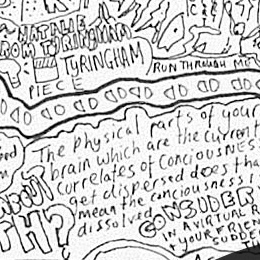 NATALIE
FROM TORINGHAM
TORINGHAM
RUN THROUGH ME
PIECE
The physical parts of your
brain which are the current
correlates of conciousness
get dispersed does tha
mean the conciousness i
dissolved
ABOUT
TH?
CONSIDER
IN A VIRTUAL R
YOUR FRIEN
SUDDE